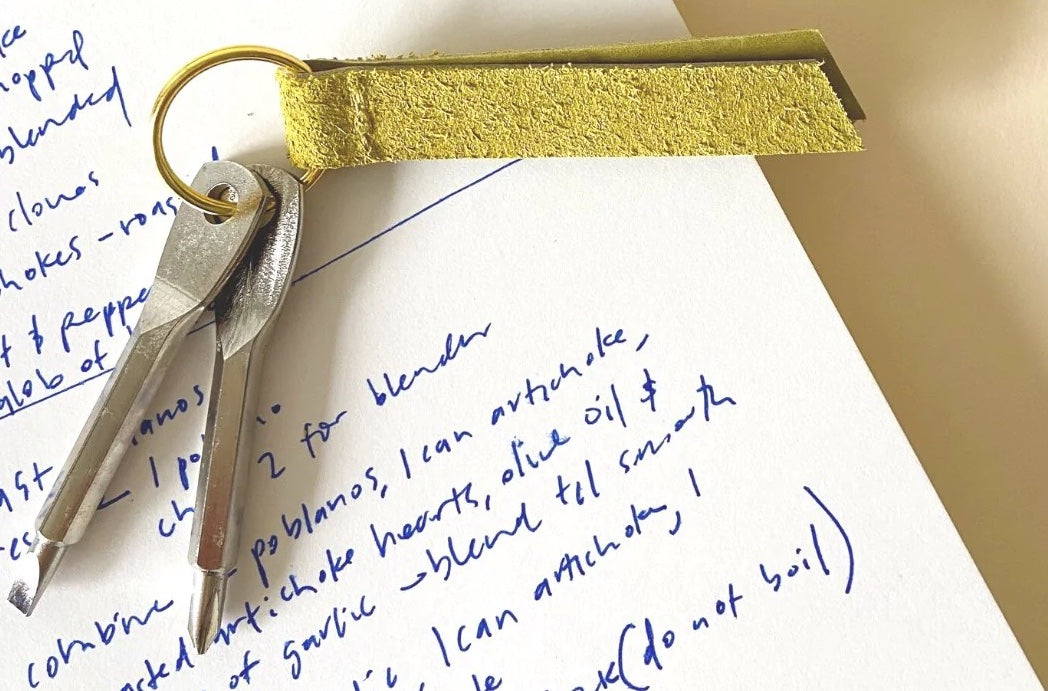 hopped
blended
cloves
hokes - roas
t & peppe
glob of
1 po
2 for blender
combine - poblanos, 1 can artichoke,
artichoke hearts, olive oil &
of garlic → blend til smooth
1 can artichoke, 1
(do not boil)